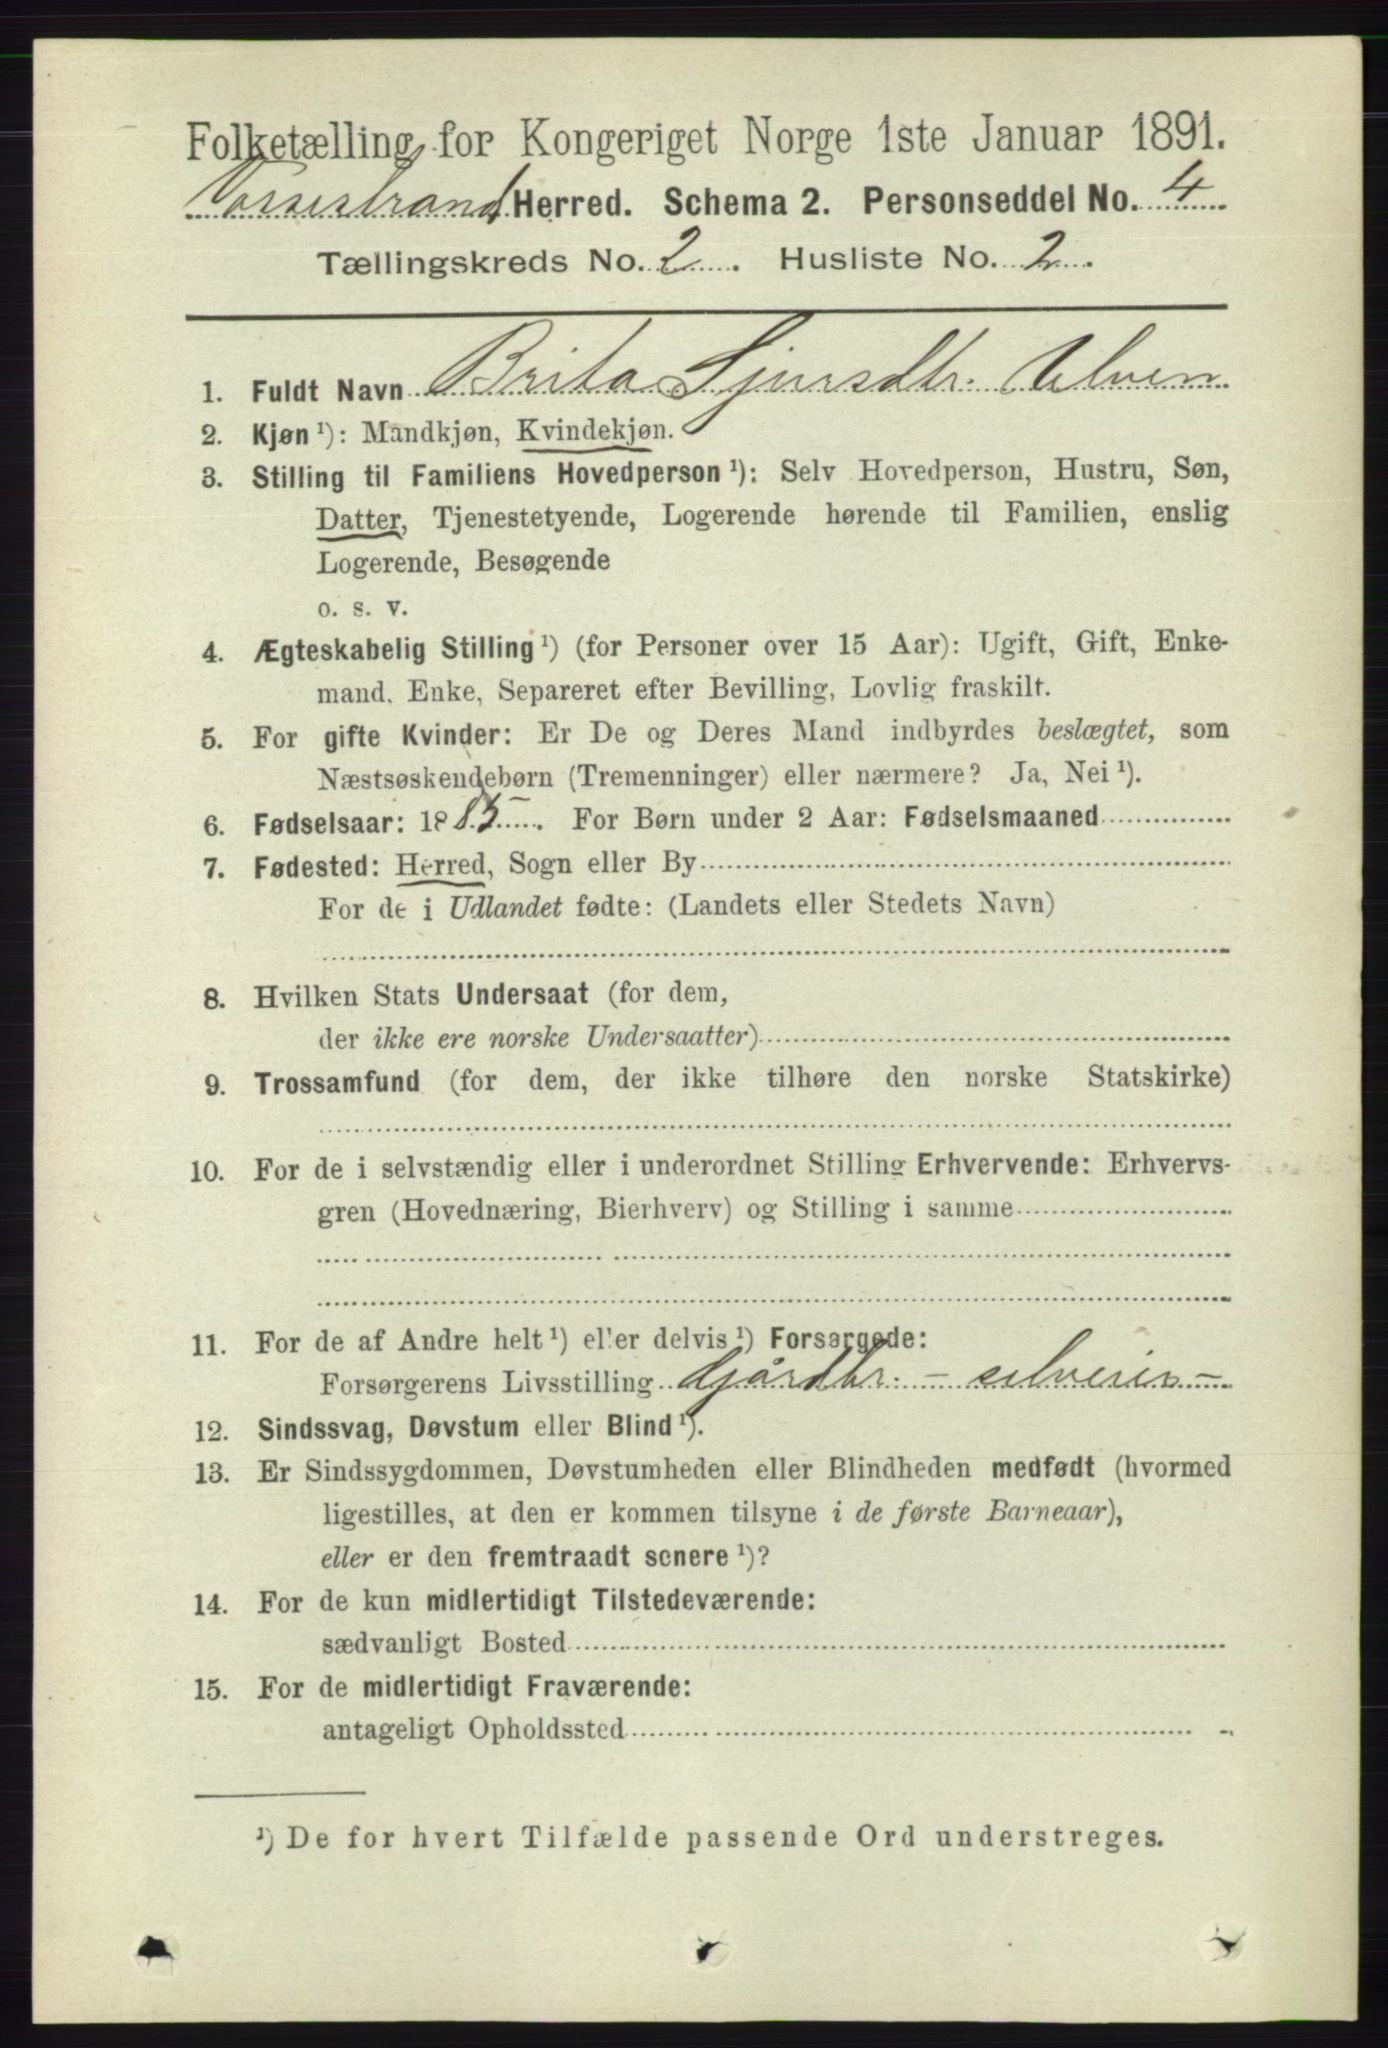 Folketælling for Kongeriget Norge 1ste Januar 1891.
Vossestrand Herred. Schema 2. Personseddel No. 4
Tællingskreds No. 2. Husliste No. 2.
1. Fuldt Navn Brita Sjursdtr. Ulven
2. Kjøn ¹): Mandkjøn, Kvindekjøn.
3. Stilling til Familiens Hovedperson ¹): Selv Hovedperson, Hustru, Søn,
Datter, Tjenestetyende, Logerende hørende til Familien, enslig
Logerende, Besøgende
o. s. v.
4. Ægteskabelig Stilling ¹) (for Personer over 15 Aar): Ugift, Gift, Enke-
mand, Enke, Separeret efter Bevilling, Lovlig fraskilt.
5. For gifte Kvinder: Er De og Deres Mand indbyrdes beslægtet, som
Næstsøskendebørn (Tremenninger) eller nærmere? Ja, Nei ¹).
6. Fødselsaar: 1885. For Børn under 2 Aar: Fødselsmaaned
7. Fødested: Herred, Sogn eller By
For de i Udlandet fødte: (Landets eller Stedets Navn)
8. Hvilken Stats Undersaat (for dem,
der ikke ere norske Undersaatter)
9. Trossamfund (for dem, der ikke tilhøre den norske Statskirke)
10. For de i selvstændig eller i underordnet Stilling Erhvervende: Erhvervs-
gren (Hovednæring, Bierhverv) og Stilling i samme
11. For de af Andre helt ¹) eller delvis ¹) Forsørgede:
Forsørgerens Livsstilling Gjårdbr. - selveier -
12. Sindssvag, Døvstum eller Blind ¹).
13. Er Sindssygdommen, Døvstumheden eller Blindheden medfødt (hvormed
ligestilles, at den er kommen tilsyne i de første Barneaar),
eller er den fremtraadt senere ¹)?
14. For de kun midlertidigt Tilstedeværende:
sædvanligt Bosted
15. For de midlertidigt Fraværende:
antageligt Opholdssted
¹) De for hvert Tilfælde passende Ord understreges.